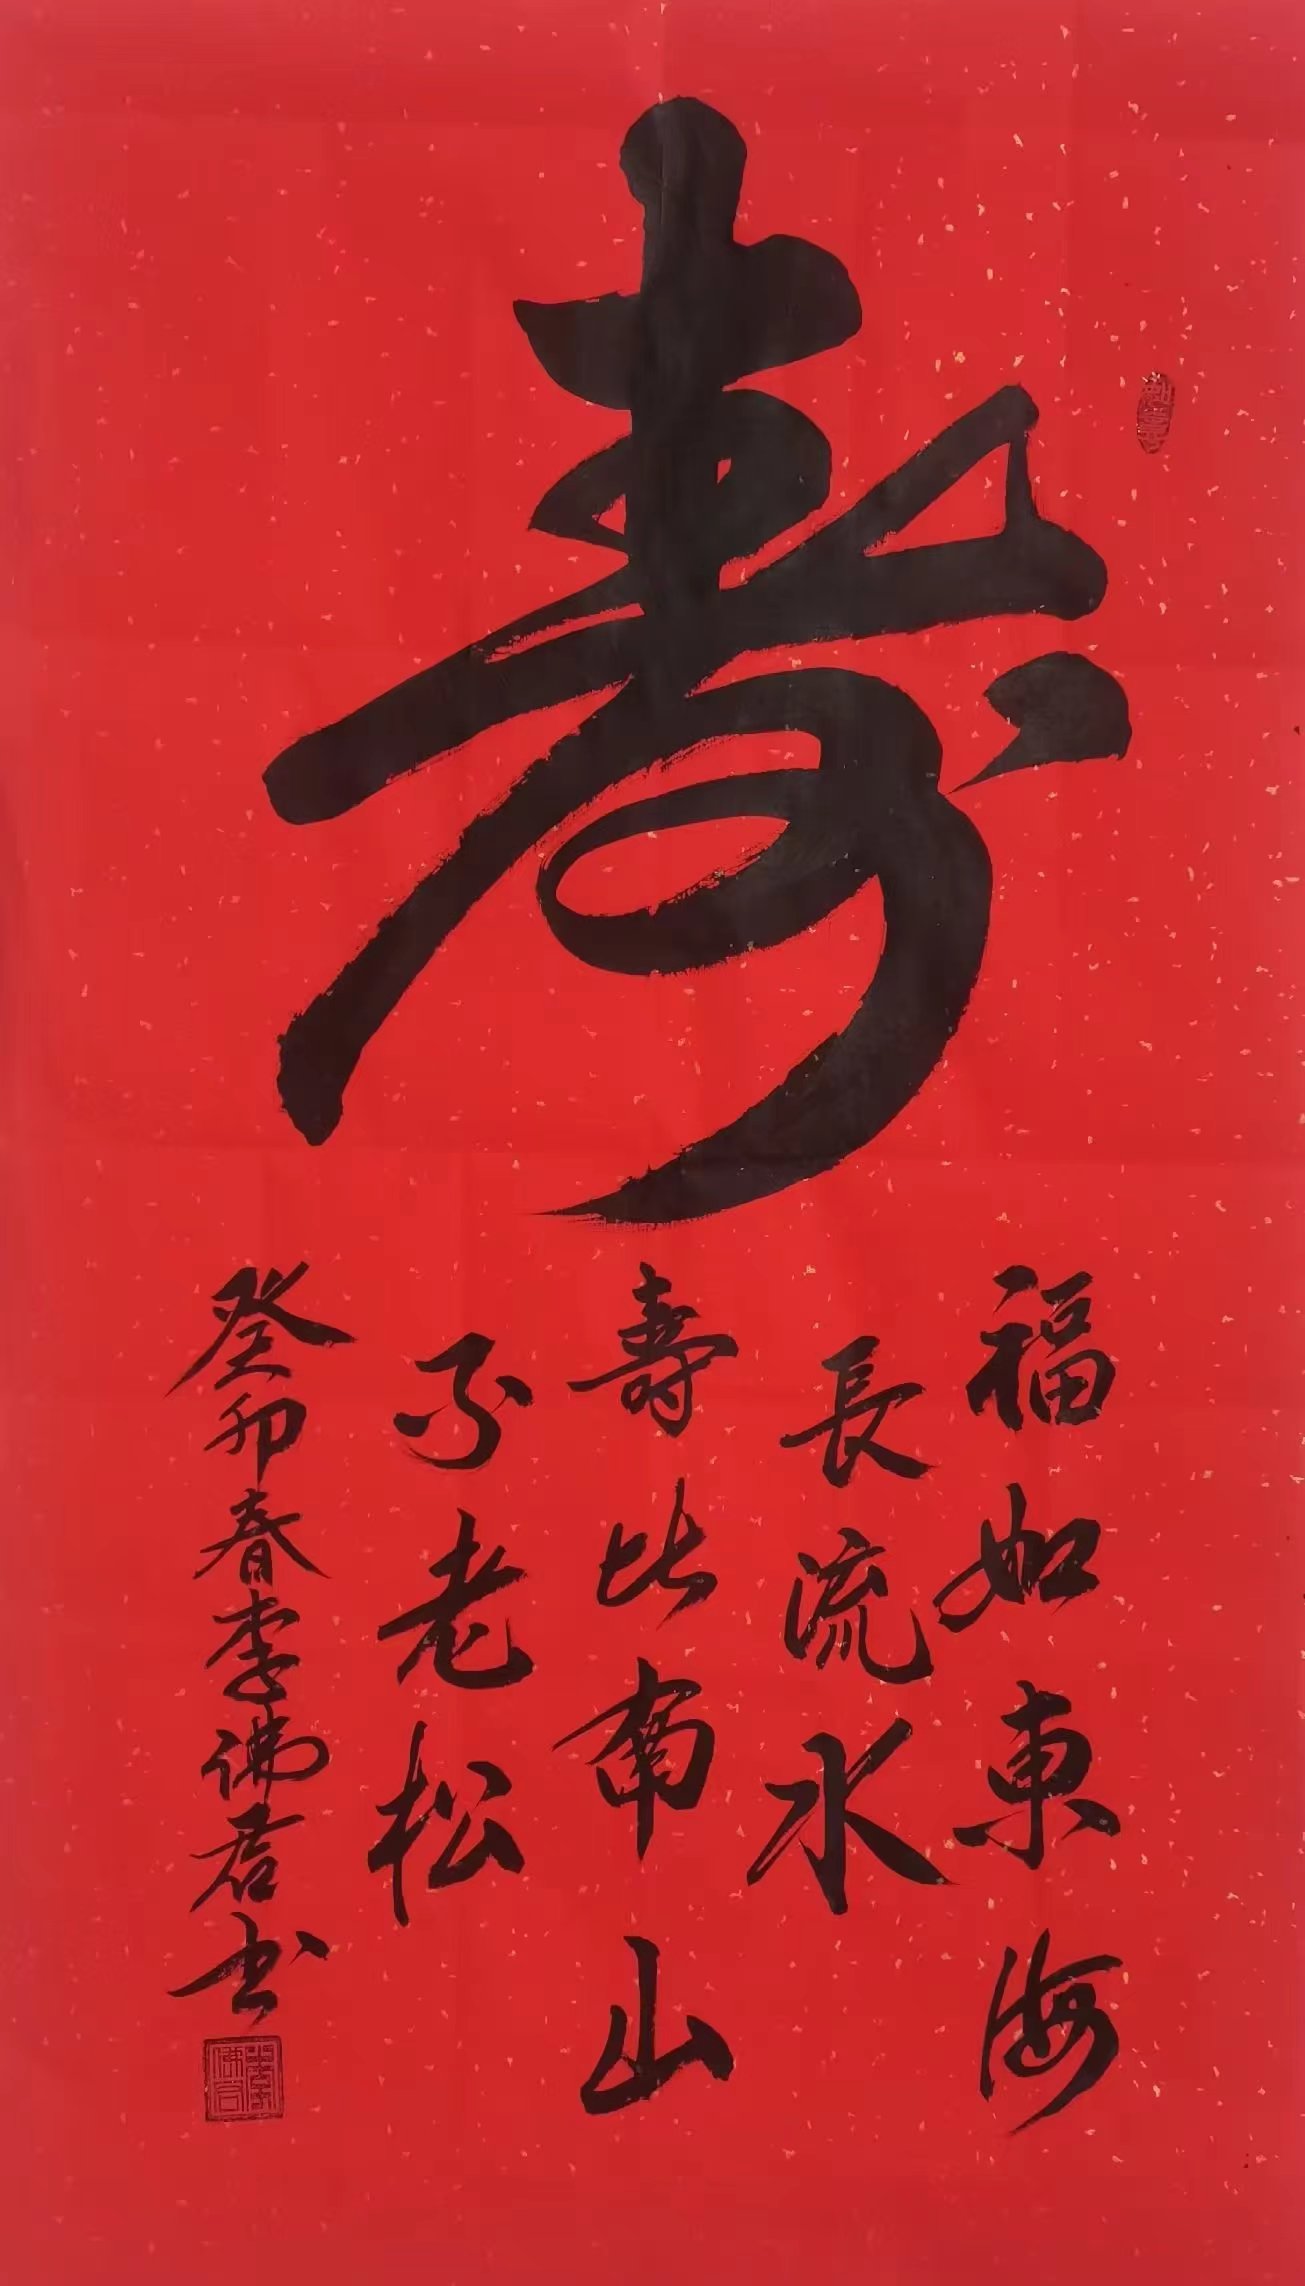 壽
福如東海
長流水
壽比南山
不老松
癸卯春李佛君书